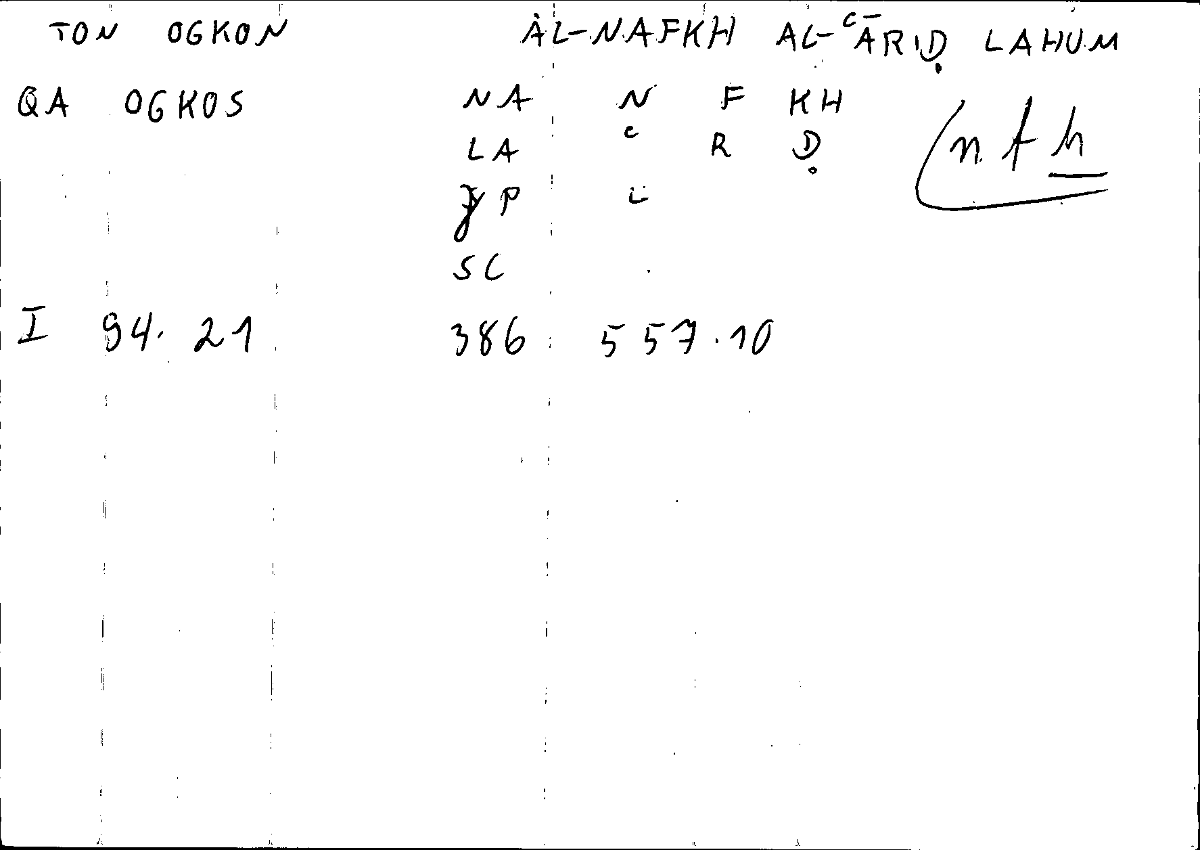 TON OGKON AL-NAFKH AL-ᶜĀRIḌ LAHUM
QA OGKOS NA N F KH
LA ᶜ R Ḍ
P L
SC
nfḫ
I 94. 21 386 557.10